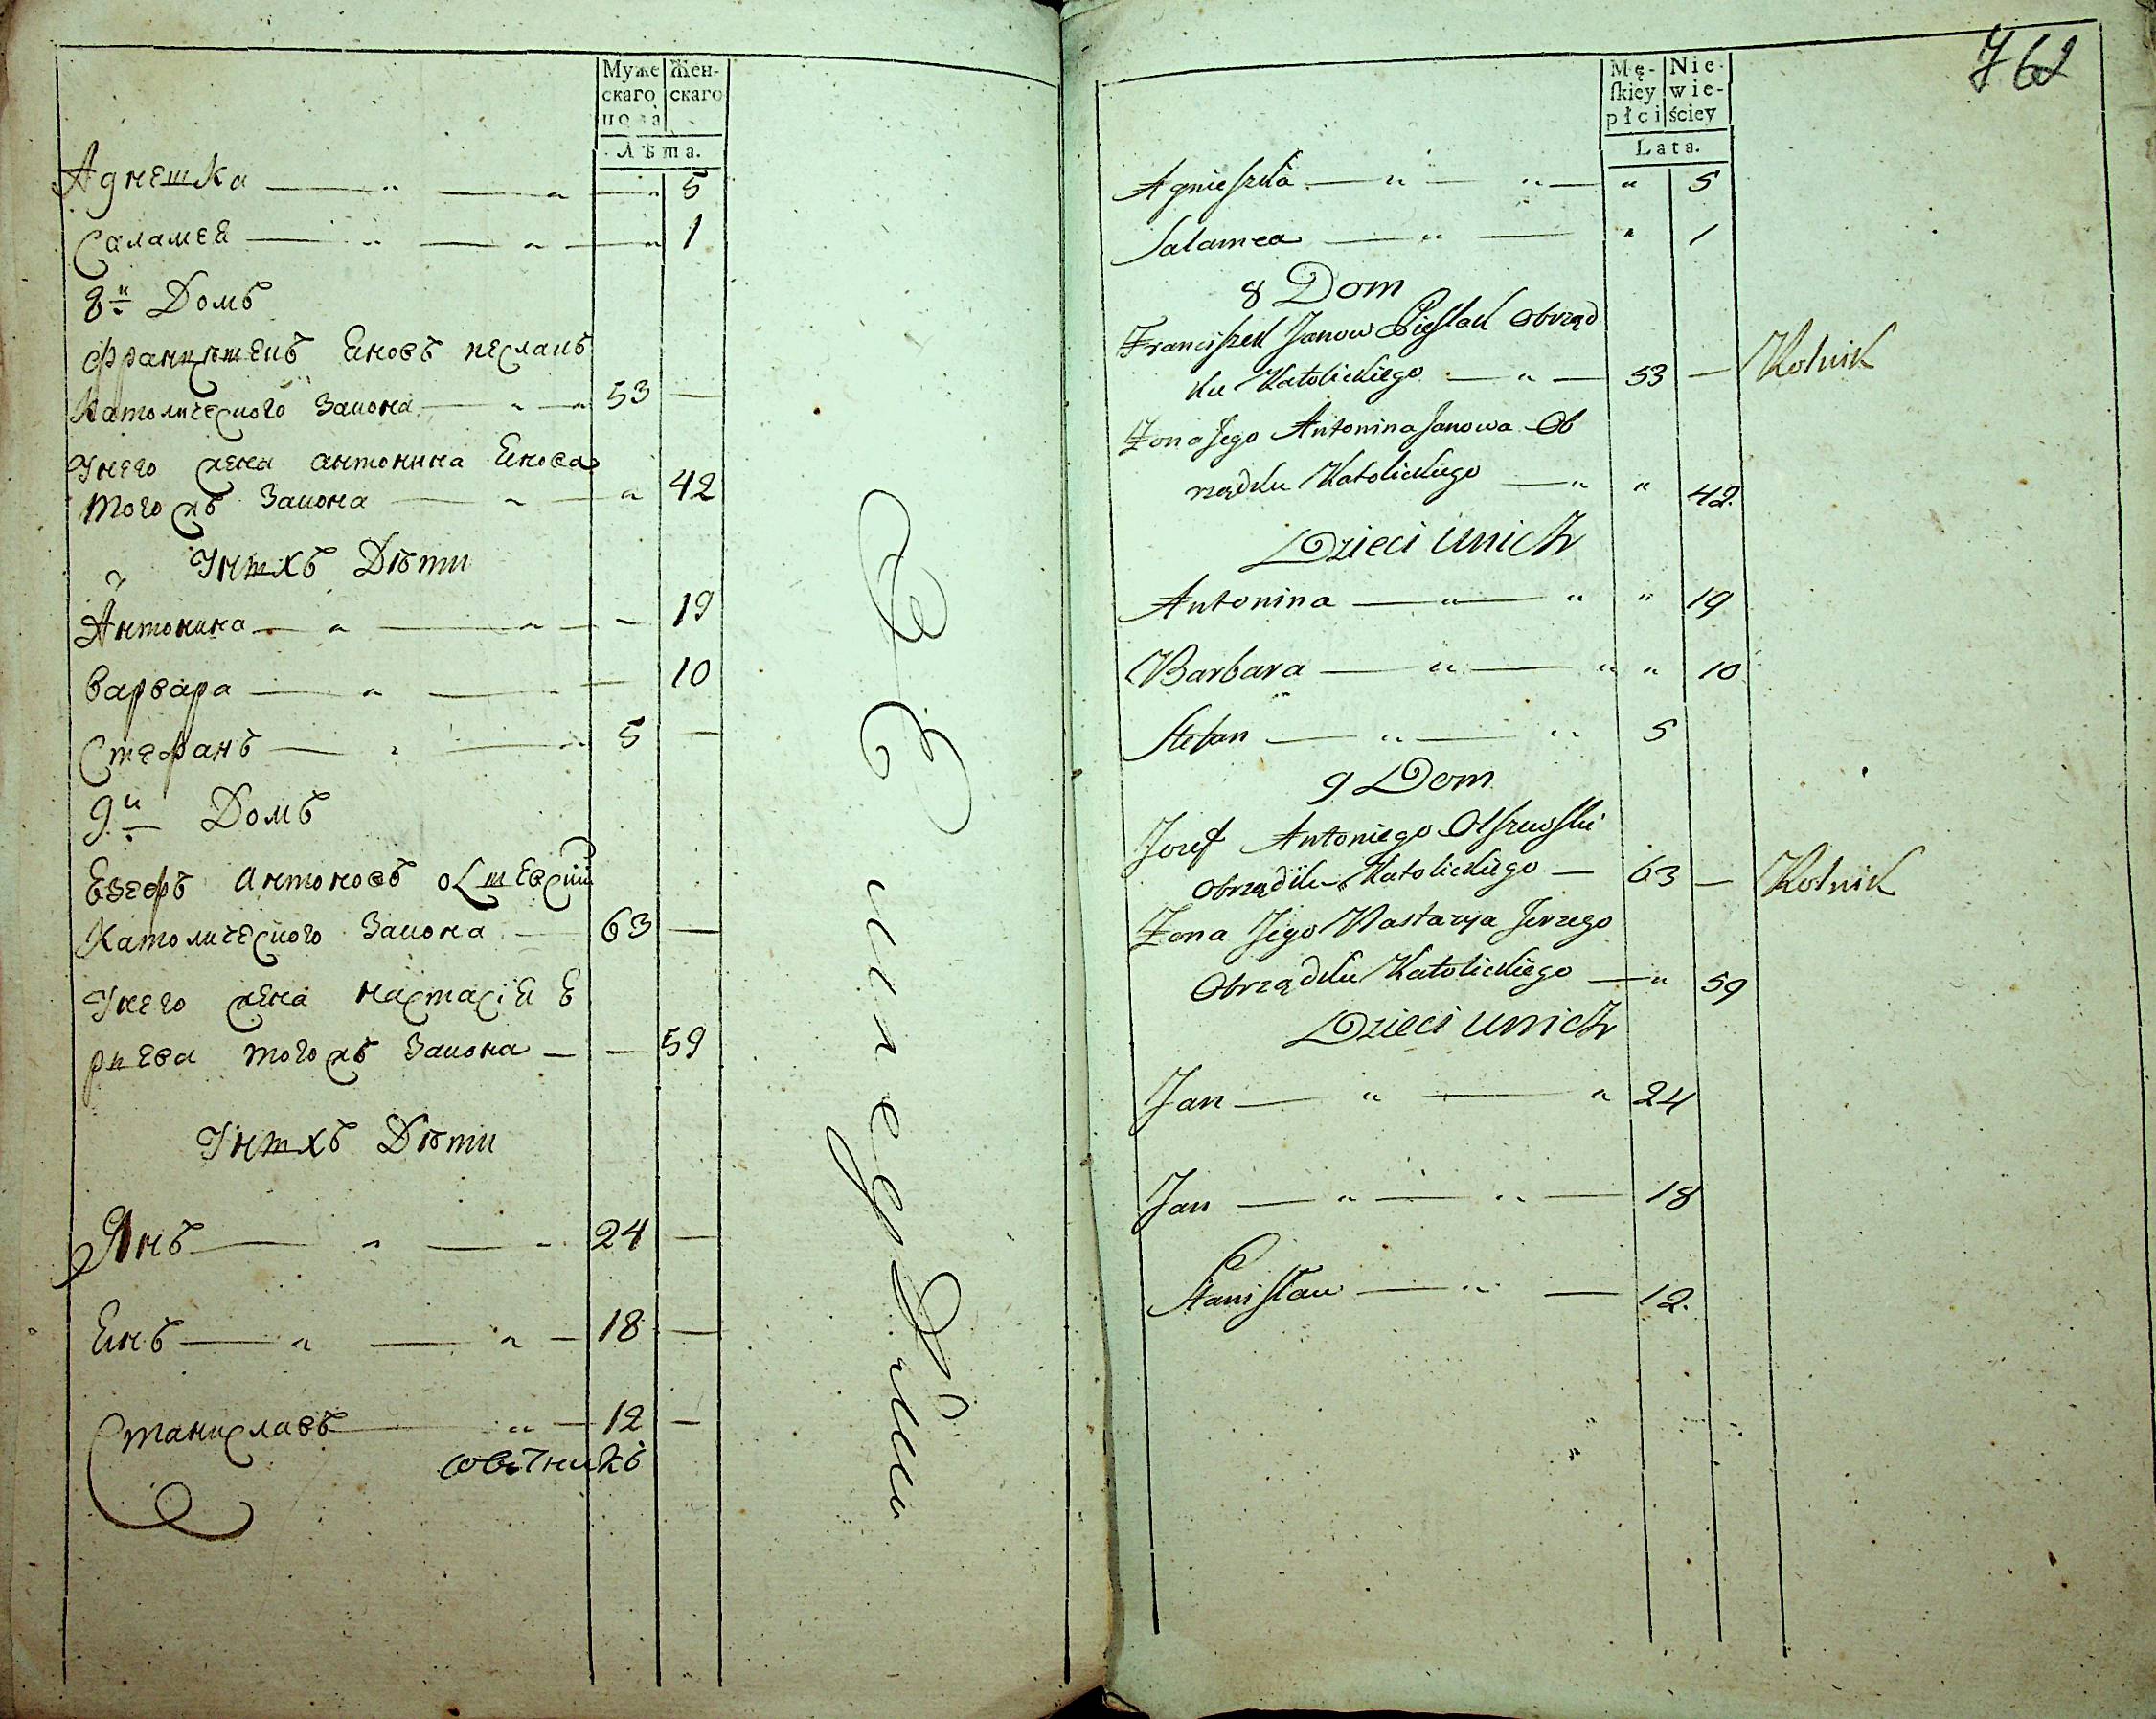 Муже
скаго
пола
Жен-
скаго
Лѣта.
Агнешка — „ — „ — „ 5
Саламея — „ — „ — „ 1
8й Домъ
Францышекъ Яновъ песлакъ
Католическаго Закона — „ — „ 53 —
Унего жена антонина Янова
того жъ Закона — „ — „ 42
Унихъ Дѣти
Антонина — „ — „ — – 19
Варвара — „ — — 10
Стефанъ — „ — „ 5 —
9й Домъ
Езефъ антоновъ олшевскій
Католического Закона — 63 —
Унего жена настасія Е
ржева того жъ Закона — — 59
Унихъ Дѣти
Янъ — „ — „ 24 —
Янъ — „ — „ — 18 —
Станиславъ — „ — 12 —
совѣтникъ
762
Mę-
ſkiey
płci
Nie-
wie-
ściey
Lata.
Agnieſzka — „ — „ — „ 5
Salamea — „ — „ 1
8 Dom
Franciſzek Janow Pieſlak Obrząd
ku Katolickiego — „ — 53 — Rolnik
Żona Jego Antonina Janowa Ob
rządku Katolickiego — „ „ 42.
Dzieci unich
Antonina — „ — „ „ 19
Barbara — „ — „ „ 10
Stefan — „ — „ 5
9 Dom
Jozef Antoniego Olſzewſki
Obrządku Katolickiego — 63 — Rolnik
Żona Jego Nastazya Jerzego
Obrządku Katolickiego — „ 59
Dzieci unich
Jan — „ — „ 24
Jan — „ — „ — 18
Staniſław — „ — 12.